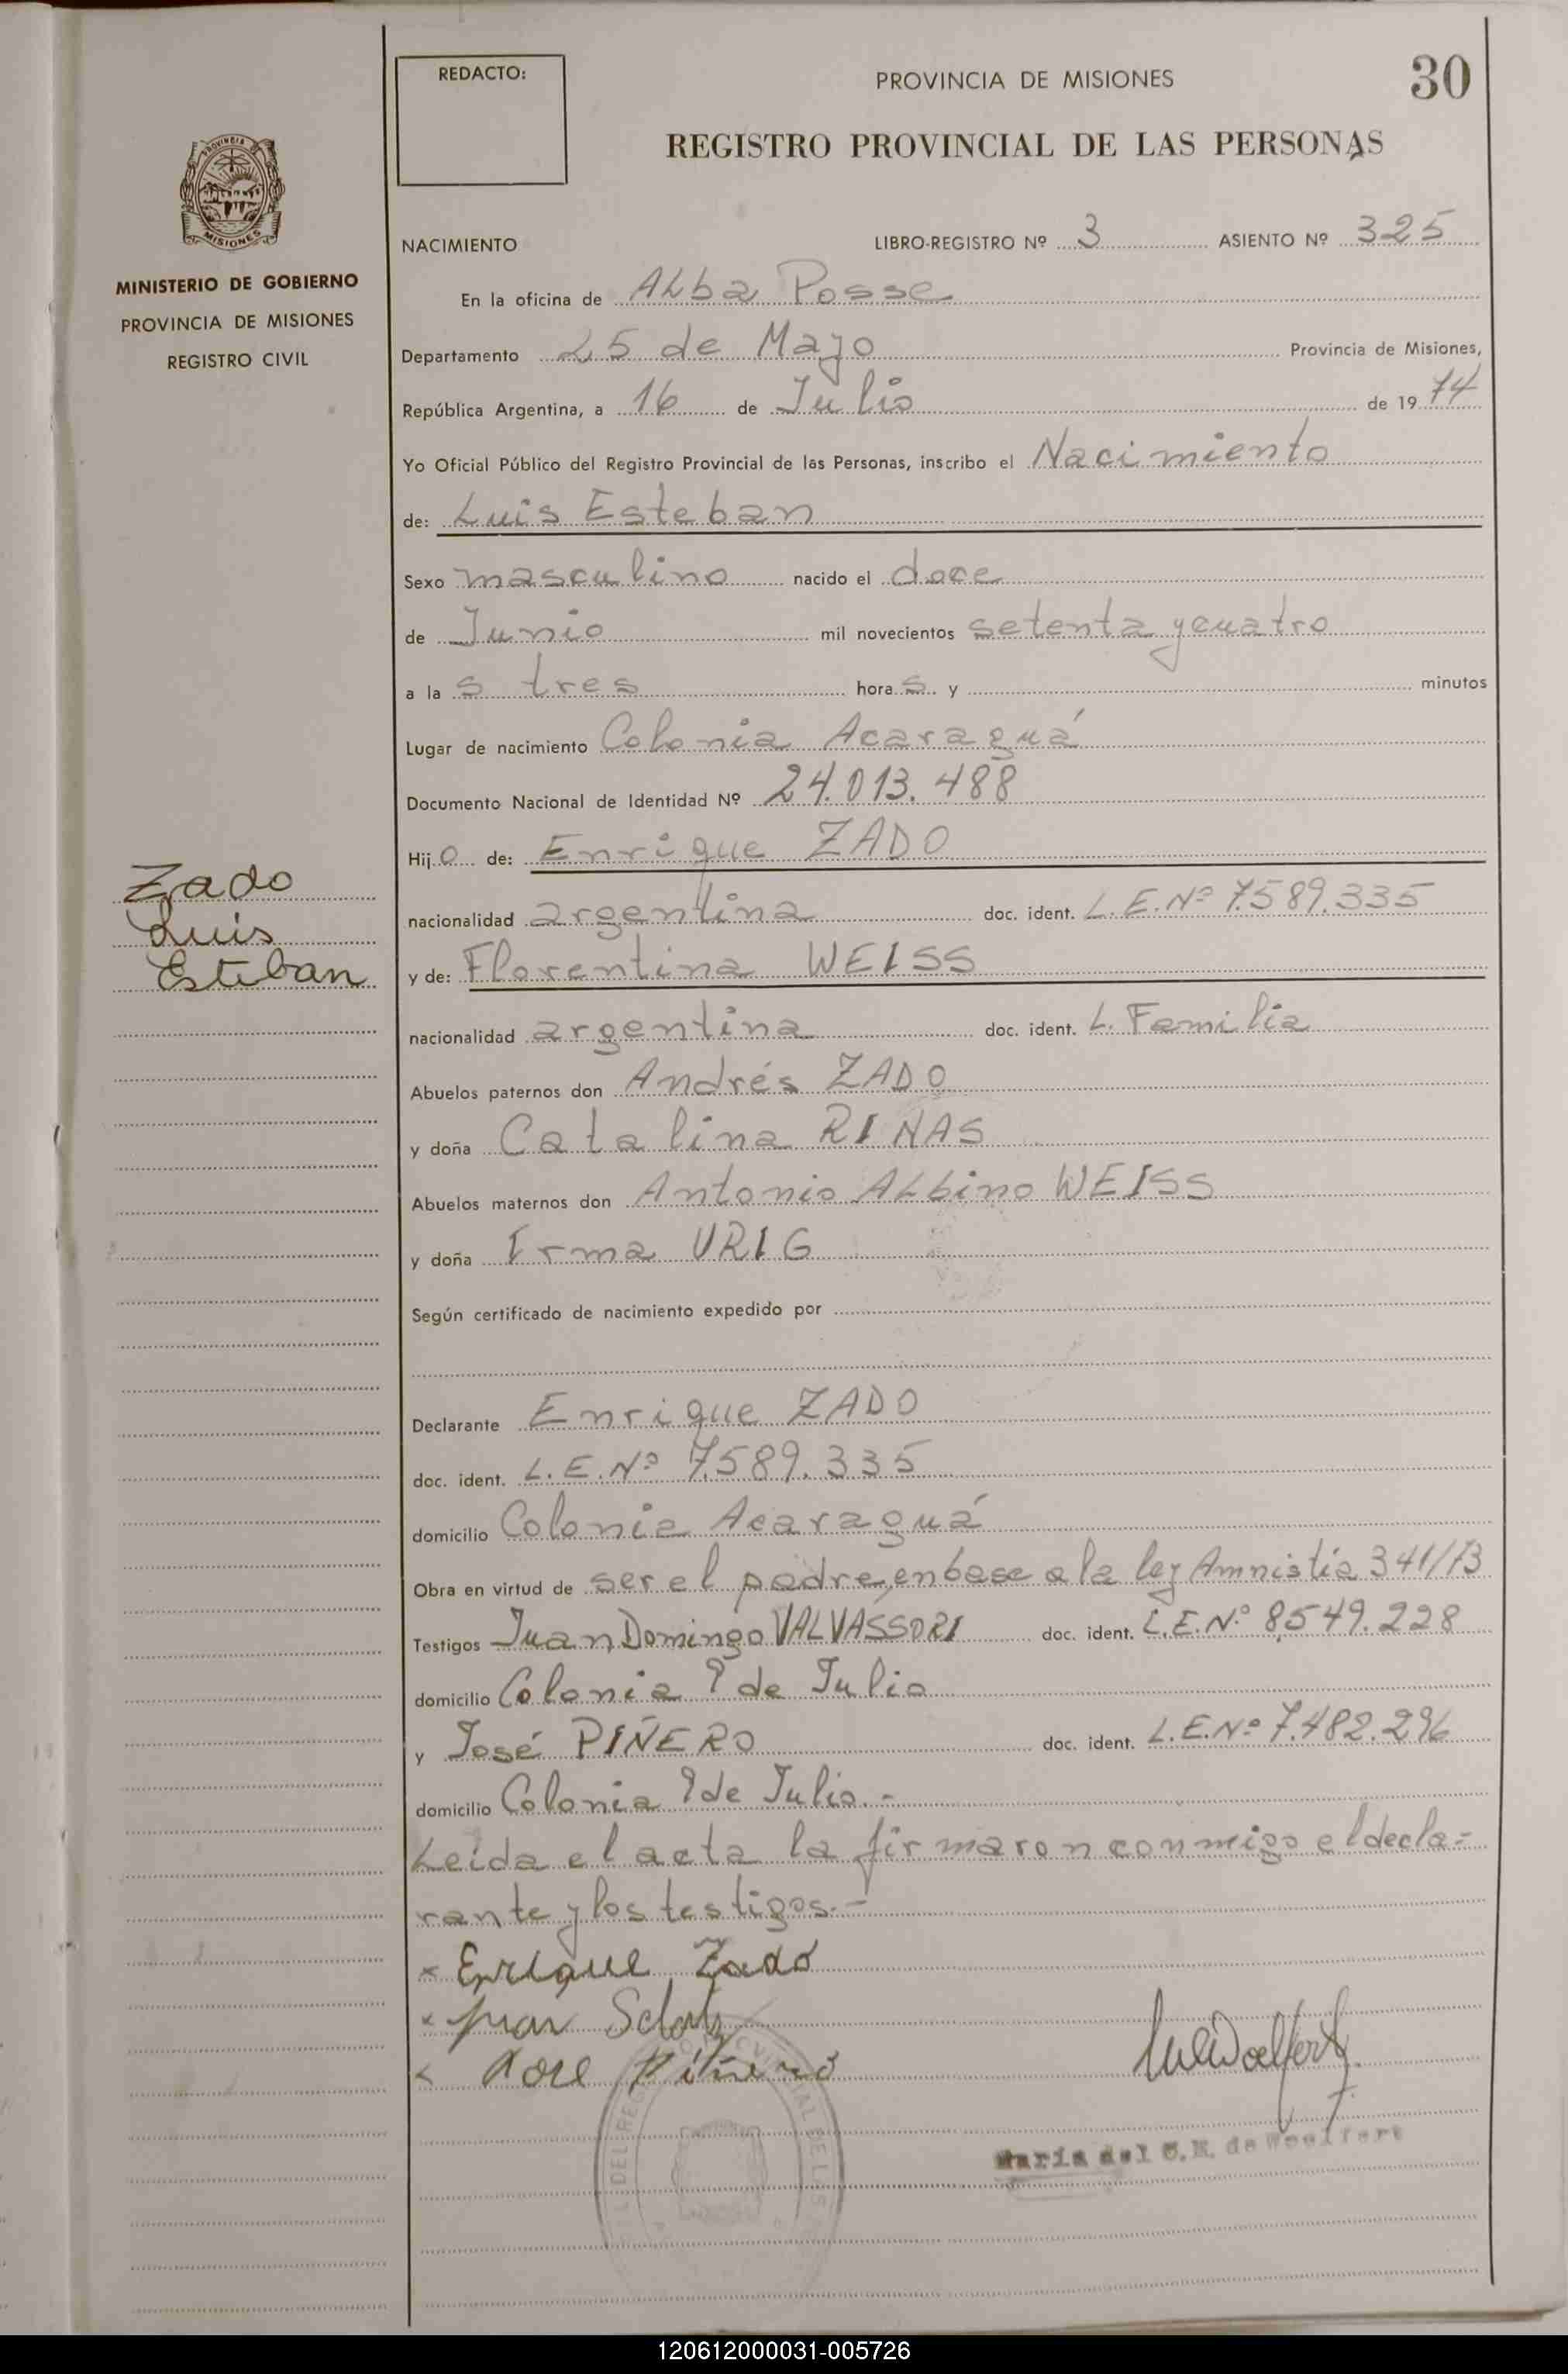 REDACTO:
PROVINCIA DE MISIONES
30
REGISTRO PROVINCIAL DE LAS PERSONAS
MISIONES
MINISTERIO DE GOBIERNO
PROVINCIA DE MISIONES
REGISTRO CIVIL
NACIMIENTO LIBRO-REGISTRO Nº 3 ASIENTO Nº 325
En la oficina de Alba Posse
Departamento 25 de Mayo Provincia de Misiones,
República Argentina, a 16 de Julio de 19 74
Yo Oficial Público del Registro Provincial de las Personas, inscribo el Nacimiento
de: Luis Esteban
Sexo masculino nacido el doce
de Junio mil novecientos setenta y cuatro
a la s tres hora s y minutos
Lugar de nacimiento Colonia Acaraguá
Documento Nacional de Identidad Nº 24.013.488
Hij o de: Enrique ZADO
Zado
Luis
Esteban
nacionalidad argentina doc. ident. L.E.Nº 7.589.335
y de: Florentina WEISS
nacionalidad argentina doc. ident. L. Familia
Abuelos paternos don Andrés ZADO
y doña Catalina RINAS
Abuelos maternos don Antonio Albino WEISS
y doña Irma URIG
Según certificado de nacimiento expedido por
Declarante Enrique ZADO
doc. ident. L.E.Nº 7.589.335
domicilio Colonia Acaraguá
Obra en virtud de ser el padre, en base a la ley Amnistía 341/73
Testigos Juan Domingo VALVASSORI doc. ident. L.E.Nº 8.549.228
domicilio Colonia 9 de Julio
y José PIÑERO doc. ident. L.E.Nº 7.482.296
domicilio Colonia 9 de Julio.-
Leída el acta la firmaron conmigo el decla=
rante y los testigos.-
x Enrique Zado
x Juan
x Jose Piñero
María del C. de Woelfert
120612000031-005726